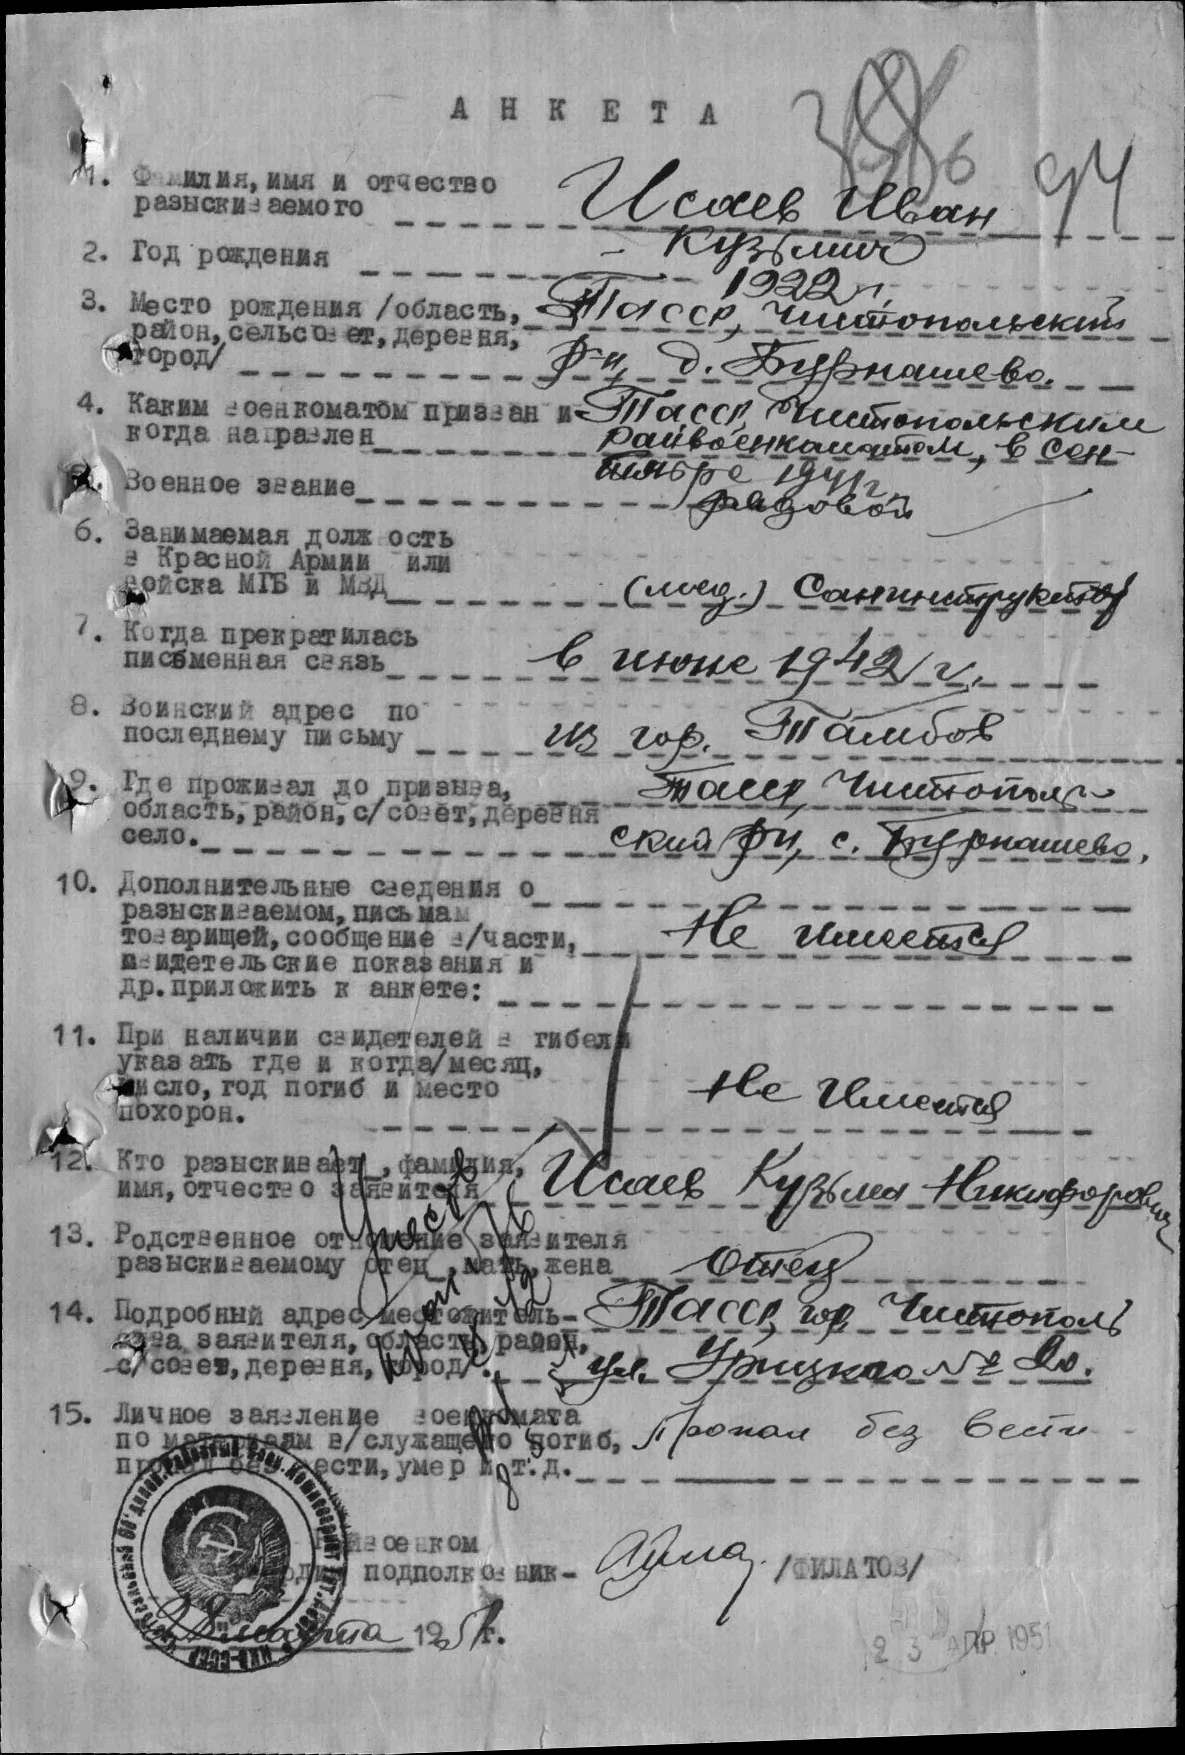 АНКЕТА
94
1. Фамилия, имя и отчество
разыскиваемого Исаев Иван
Кузьмич
2. Год рождения
1922 г.
3. Место рождения /область, Тасср, Чистопольский
район, сельсовет, деревня,
город/ р-н, д. Бурнашево.
4. Каким военкоматом призван и Тасср, Чистопольским
когда направлен райвоенкоматом, в сен-
тябре 1941 г.
5. Военное звание рядовой
6. Занимаемая должность
в Красной Армии или
войска МГБ и МВД (мед.) Санинструктор
7. Когда прекратилась
письменная связь в июне 1942 г.
8. Воинский адрес по
последнему письму из гор. Тамбов
9. Где проживал до призыва, Тасср, Чистополь-
область, район, с/совет, деревня
село. ский р-н, с. Бурнашево.
10. Дополнительные сведения о
разыскиваемом, письмам
товарищей, сообщение в/части, Не имеется
свидетельские показания и
др. приложить к анкете:
11. При наличии свидетелей в гибели
указать где и когда/месяц,
число, год погиб и место
похорон. Не имеется
12. Кто разыскивает, фамилия, Исаев Кузьма Никифорович
имя, отчество заявителя
13. Родственное отношение заявителя
разыскиваемому отец, мать, жена Отец
14. Подробный адрес местожитель- Тасср, гор. Чистополь
ства заявителя, область, район,
с/совет, деревня, город/. ул. Урицкого № 20.
15. Личное заявление военкомата
по материалам в/служащего погиб, Пропал без вести
пропал без вести, умер и т.д.
Райвоенком
подполковник- /ФИЛАТОВ/
28 марта 1951 г.
23 АПР 1951